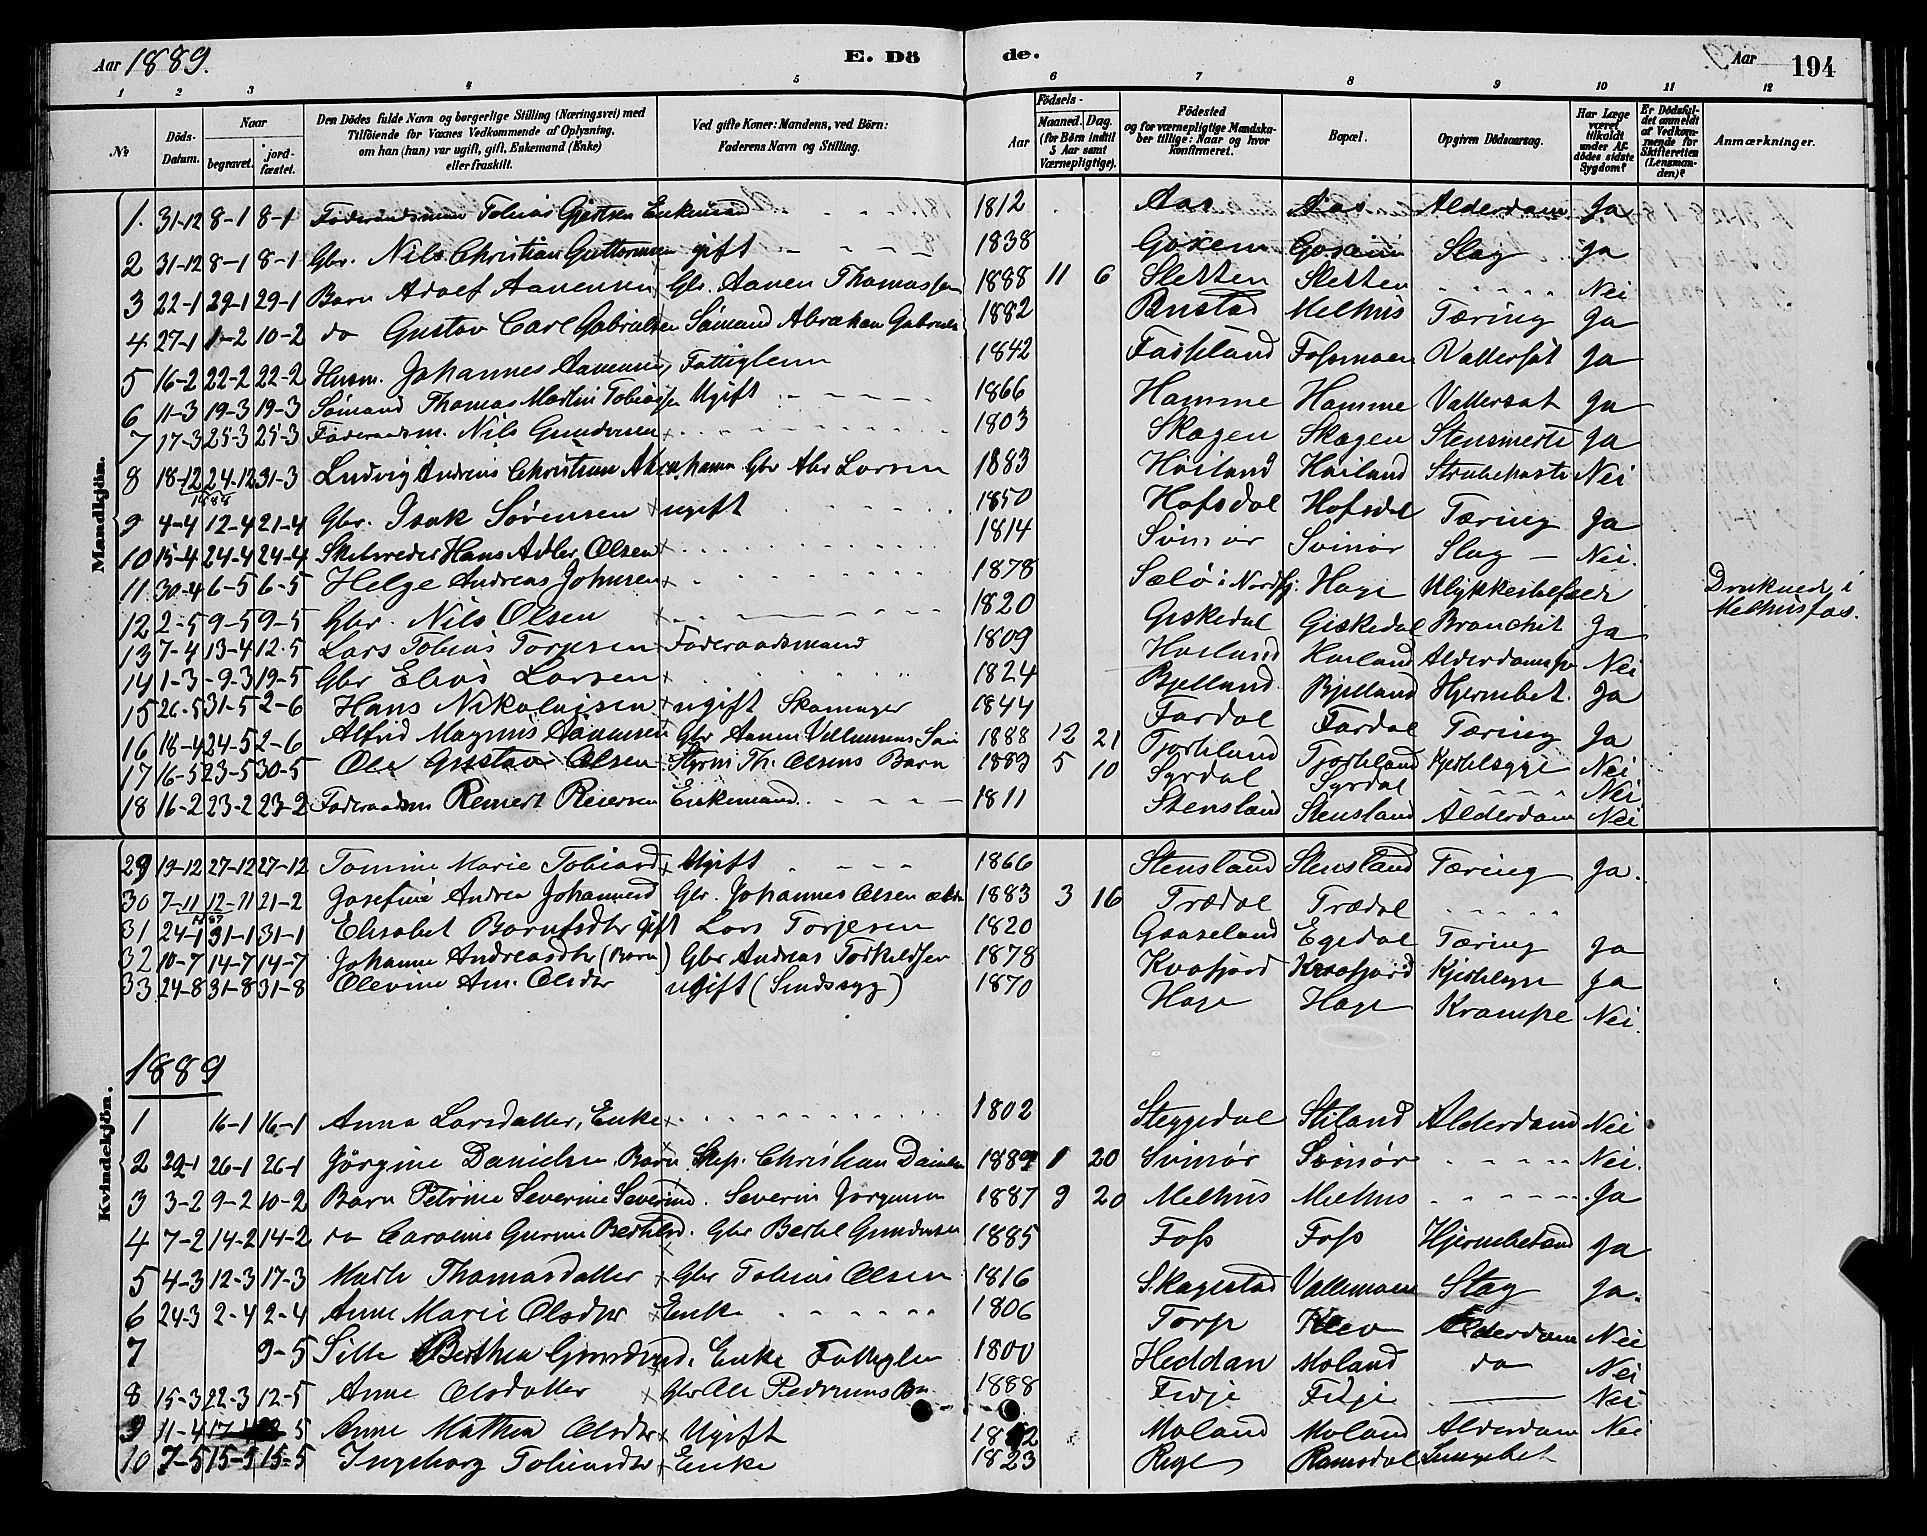 Aar 1889. E. Döde. Aar 194
1 2 3 4 5 6 7 8 9 10 11 12
№
Döds-Datum.
Naar
begravet.
jord-fæstet.
Den Dödes fulde Navn og borgerlige Stilling (Næringsvei) med
Tilföiende for Voxnes Vedkommende af Oplysning,
om han (hun) var ugift, gift, Enkemand (Enke)
eller fraskilt.
Ved gifte Koner: Mandens, ved Börn:
Faderens Navn og Stilling.
Födsels-
Aar
Maaned. Dag.
(for Börn indtil
5 Aar samt
Værnepligtige).
Födested
og for værnepligtige Mandska-
ber tillige: Naar og hvor
konfirmeret.
Bopæl.
Opgiven Dödsaarsag.
Har Læge
været
tilkaldt
under Af-
dödes sidste
Sygdom?
Er Dödsfal-
det anmeldt
af Vedkom-
mende for
Skifteretten
(Lensman-
den)?
Anmærkninger.
Mandkjön.
1. 31-12 8-1 8-1 Føderaadsmand Tobias Gjertsen Enkemand 1812 Aas Aas Alderdom Ja
2 31-12 8-1 8-1 Gbr. Nils Christian Guttormsen gift 1838 Goxem Goxem Slag Ja
3 22-1 29-1 29-1 Barn Adolf Aanensen Gbr. Aanen Thomassen 1888 11 6 Sletten Sletten Nei
4 27-1 1-2 10-2 do Gustav Carl Gabrielsen Sømand Abraham Gabriels 1882 Bustad Melhus Tæring Ja
5 16-2 22-2 22-2 Husm. Johannes Aanensen, Fattiglem 1842 Faseland Fossmoen Vattersot Ja
6 11-3 19-3 19-3 Sømand Thomas Martin Tobiassen Ugift 1866 Hamme Hamme Vattersot Ja
7 17-3 25-3 25-3 Føderaadsm. Nils Gundersen 1803 Skogen Skogen Stensmerte Ja
8 18-12 24-12 31-3 Ludvig Andreas Christian Abrahamsen Gbr Abr Larsen 1883 Høiland Høiland Strubehoste Nei
1888
9 4-4 12-4 21-4 Gbr. Isak Sørensen ugift 1850 Hofsdal Hofsdal Tæring Ja
10 15-4 24-4 24-4 Skibsreder Hans Adler Olsen 1814 Svinør Svinør Slag Nei.
11 30-4 6-5 6-5 Helge Andreas Johnsen 1878 Sælø i Nordfj. Hage Ulykkestilfælde Druknede i
Melhusfos.
12 2-5 9-5 9-5 Gbr. Nils Olsen 1820 Giskedal Giskedal Bronchit Ja
13 7-4 13-4 12-5 Lars Tobias Torjesen Føderaadsmand 1809 Høiland Høiland Alderdomssv Nei
14 1-3 9-3 19-5 Gbr Elias Larsen 1824 Bjelland Bjelland Hjernebet. Ja
15 26-5 31-5 2-6 Hans Nikolaisen ugift Skomager 1844 Fardal Fardal Tæring Ja
16 18-4 24-5 2-6 Alfrid Magnus Aanensen Gbr Aanen Villumsens Søn 1888 12 21 Tjorteland Tjorteland Kjertelsyge Nei
17 16-5 23-5 30-5 Ole Gustav Olsen Styrm Th. Olsens Barn 1889 5 10 Syrdal Syrdal Nei
18 16-2 23-2 23-2 Føderaadsm Reinert Reiersen Enkemand 1811 Stensland Stensland Alderdom Nei
29 19-12 27-12 27-12 Tomine Marie Tobiasd Ugift 1866 Stensland Stensland Tæring Ja.
30 7-11 12-11 21-2 Josefine Andrea Johannesd Gbr. Johannes Olsen 1883 3 16 Trædal Trædal
31 24-1 31-1 31-1 Elisabet Barufsdtr gift Lars Torjesen 1820 Gaaseland Egedal Tæring Ja
32 10-7 14-7 14-7 Johanne Andreasdtr (Barn) Gbr Andreas Torkeldsen 1878 Kvafjord Kvafjord Kjertelsyge Ja
33 24-8 31-8 31-8 Olevine Am. Olsdtr ugift (Sindssyg) 1870 Hage Hage Krampe Nei
Kvindekjön.
1889
1 16-1 16-1 Anna Larsdatter, Enke 1802 Steggedal Stiland Alderdom Nei
2 22-1 26-1 26-1 Jørgine Danielsen Barn Skp. Christian Danielsen 1889 1 20 Svinør Svinør Nei.
3 3-2 9-2 10-2 Barn Petrine Severine Severind. Severin Jørgensen 1887 9 20 Melhus Melhus Ja
4 7-2 14-2 14-2 do Caroline Gurine Berthelsd. Gbr Bertel Gundersen 1885 Foss Foss Hjernebetænd Ja
5 4-3 12-3 17-3 Marte Thomasdatter Gbr Tobias Olsen 1816 Skagestad Vallemoen Slag Ja.
6 24-3 2-4 2-4 Anne Marie Olsdtr Enke 1806 Torp Klev Alderdom Nei
7 9-5 Sille Berthea Gundersd. Enke Fattiglem 1800 Heddan Moland do Nei
8 15-3 22-3 12-5 Anne Olsdatter Gbr Ole Pedersens Bn 1888 Fidje Fidje Nei
9 11-4 17-4 5 Anne Mathea Olsdtr Ugift Moland Moland Alderdom Nei
10 7-5 15-5 15-5 Ingeborg Tobiasdtr Enke 1823 Rege Ramsdal Lungebet